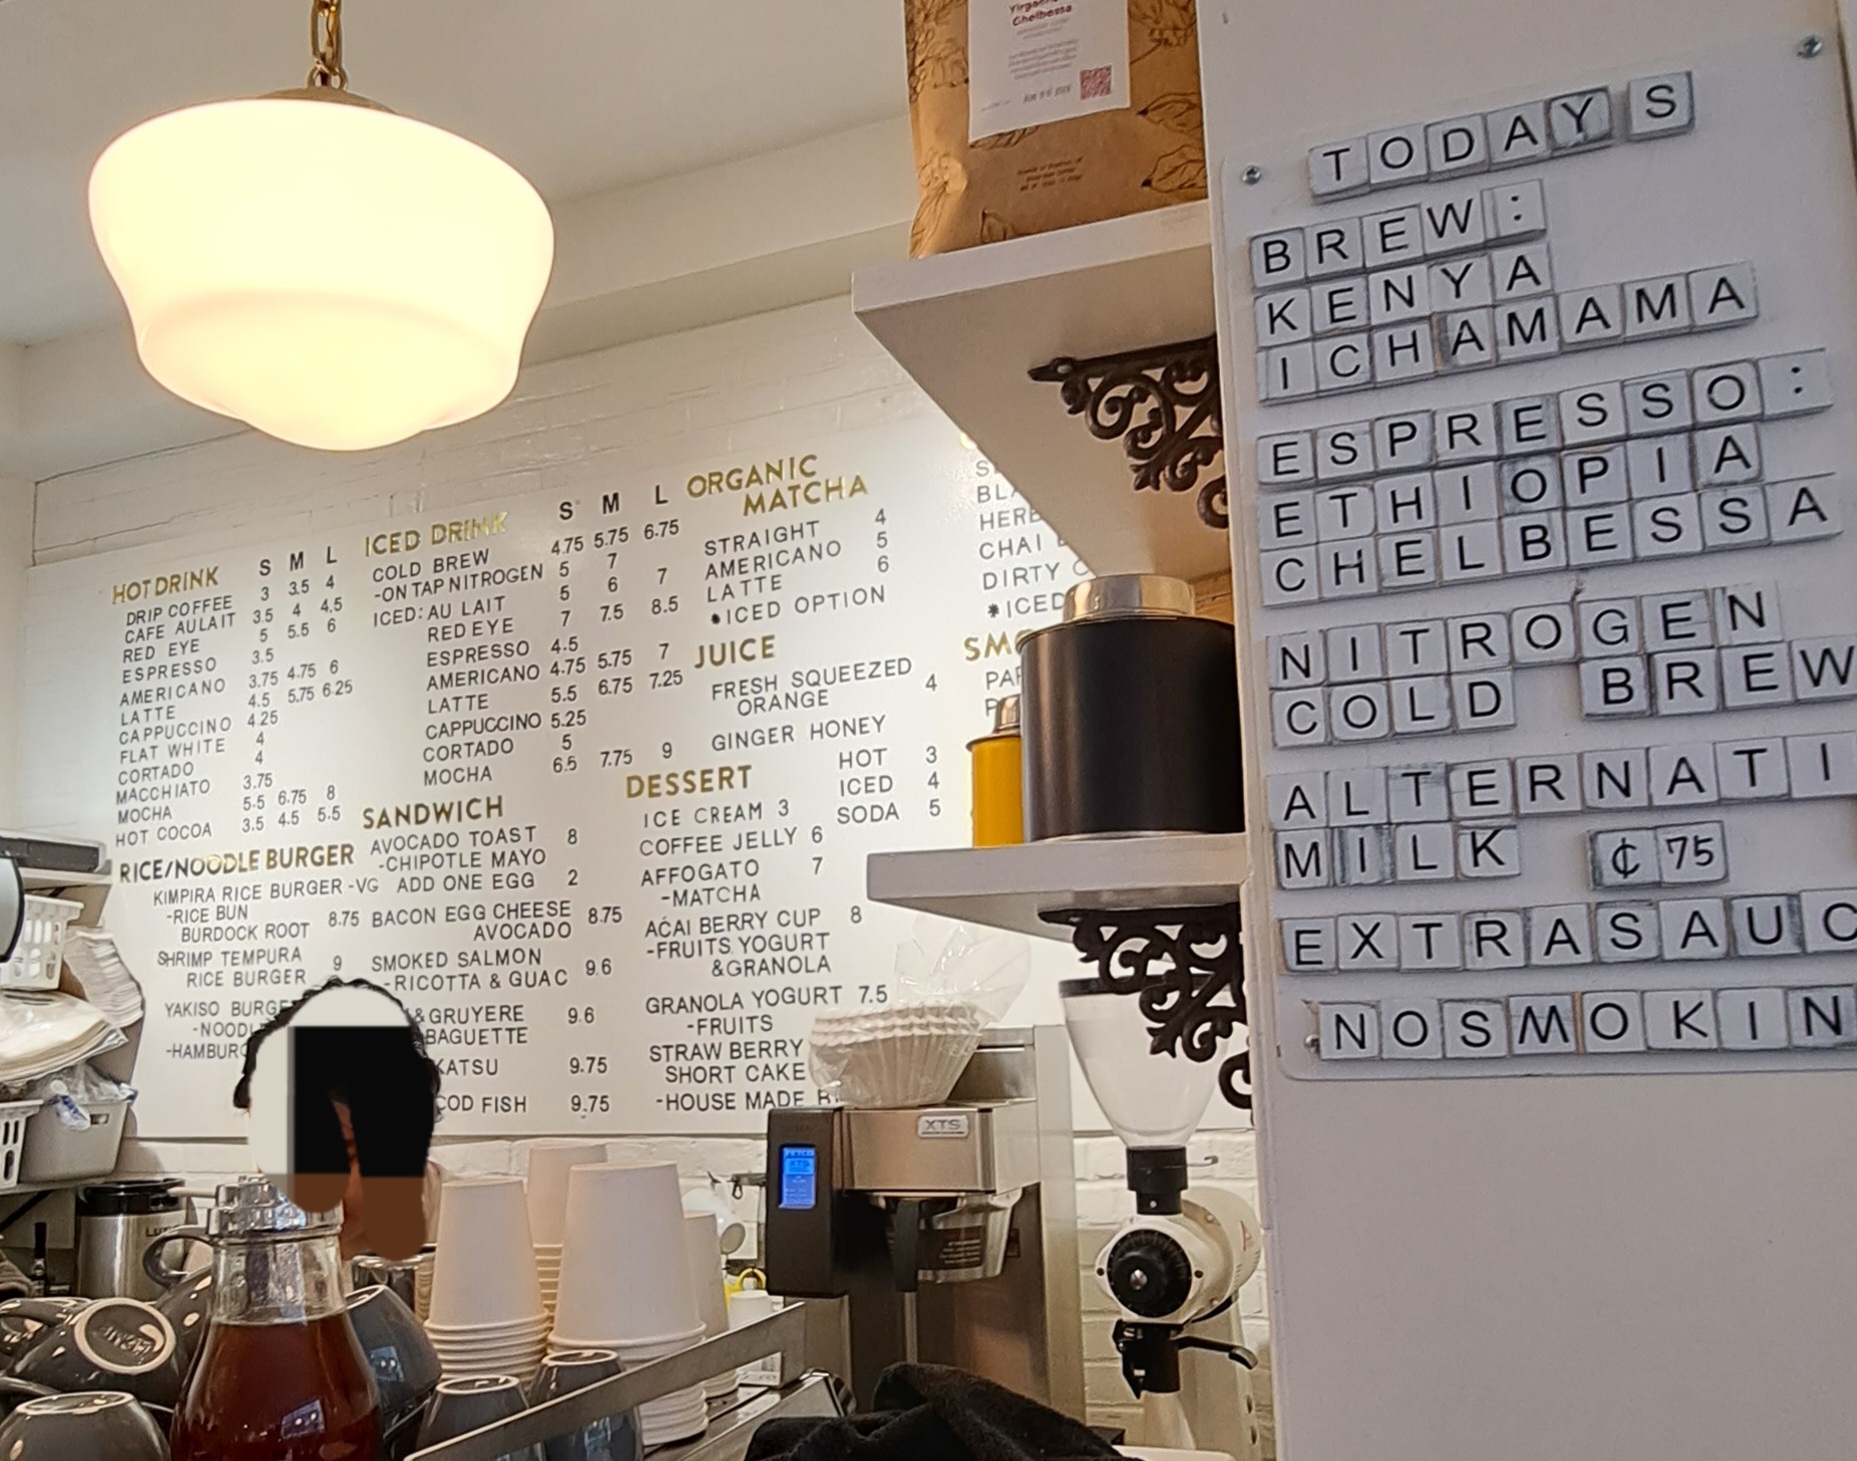 HOT DRINK S M L
DRIP COFFEE 3 3.5 4
CAFE AU LAIT 3.5 4 4.5
RED EYE 5 5.5 6
ESPRESSO 3.5
AMERICANO 3.75 4.75 6
LATTE 4.5 5.75 6.25
CAPPUCCINO 4.25
FLAT WHITE 4
CORTADO 4
MACCHIATO 3.75
MOCHA 5.5 6.75 8
HOT COCOA 3.5 4.5 5.5
RICE/NOODLE BURGER
KIMPIRA RICE BURGER -VG
-RICE BUN
BURDOCK ROOT 8.75
SHRIMP TEMPURA
RICE BURGER 9
YAKISO BURGE
-NOODL
-HAMBURG
ICED DRINK S M L
COLD BREW 4.75 5.75 6.75
-ON TAP NITROGEN 5 7
ICED: AU LAIT 5 6 7
RED EYE 7 7.5 8.5
ESPRESSO 4.5
AMERICANO 4.75 5.75 7
LATTE 5.5 6.75 7.25
CAPPUCCINO 5.25
CORTADO 5
MOCHA 6.5 7.75 9
SANDWICH
AVOCADO TOAST 8
-CHIPOTLE MAYO
ADD ONE EGG 2
BACON EGG CHEESE
AVOCADO 8.75
SMOKED SALMON
-RICOTTA & GUAC 9.6
& GRUYERE 9.6
BAGUETTE
KATSU 9.75
COD FISH 9.75
ORGANIC
MATCHA
STRAIGHT 4
AMERICANO 5
LATTE 6
*ICED OPTION
JUICE
FRESH SQUEEZED
ORANGE 4
GINGER HONEY
HOT 3
ICED 4
SODA 5
DESSERT
ICE CREAM 3
COFFEE JELLY 6
AFFOGATO 7
-MATCHA
AÇAI BERRY CUP 8
-FRUITS, YOGURT
&GRANOLA
GRANOLA YOGURT 7.5
-FRUITS
STRAW BERRY
SHORT CAKE
-HOUSE MADE
BLA
HERB
CHAI
DIRTY
*ICED
SMO
Chelbessa
XTS
TODAY S
BREW:
KENYA
ICHAMAMA
ESPRESSO:
ETHIOPIA
CHELBESSA
NITROGEN
COLD BREW
ALTERNATI
MILK ¢75
EXTRASAUC
NOSMOKIN